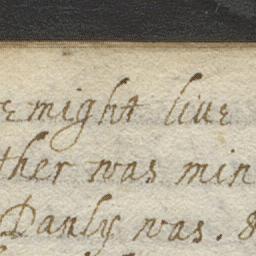 e might liue
ther was min
Danly was. &